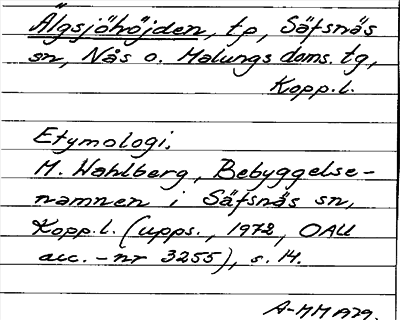 Älgsjöhöjden, tp, Säfsnäs
sn, Nås o. Malungs doms. tg,
Kopp.l.
Etymologi.
M. Wahlberg, Bebyggelse-
namnen i Säfsnäs sn,
Kopp.l. (upps., 1972, OAU
acc. -nr 3255), s. 14.
A-MM 1979.